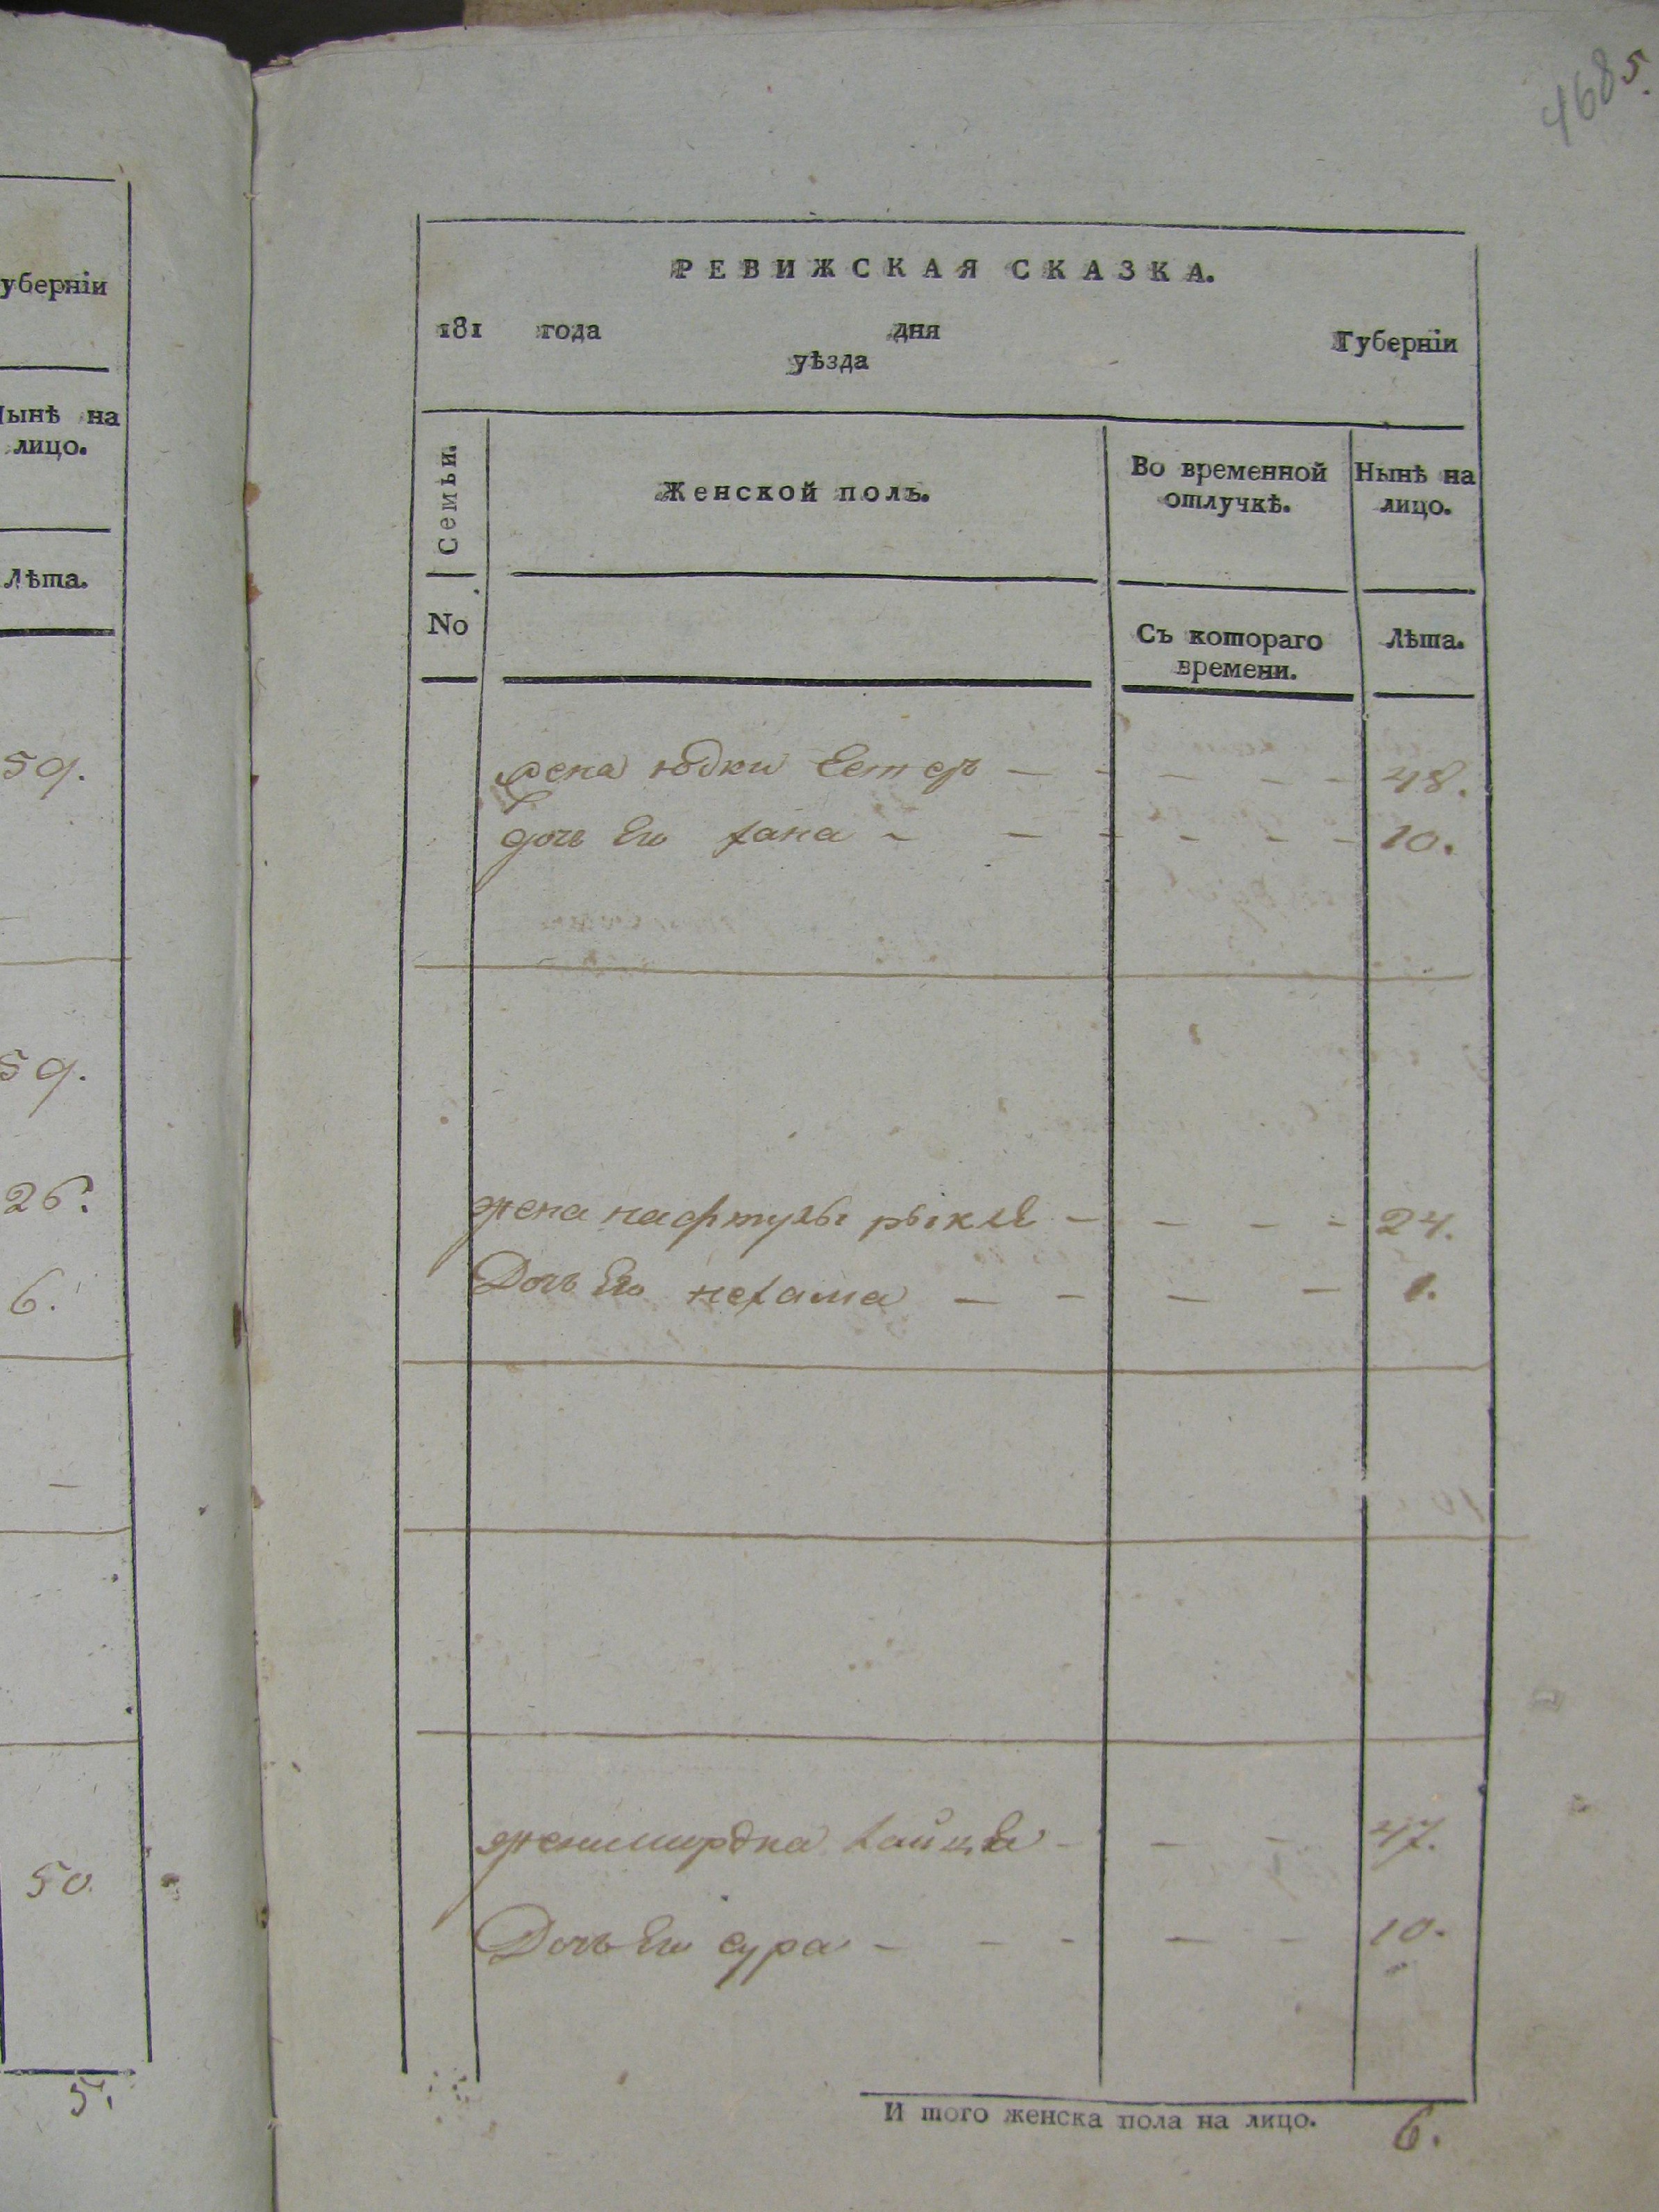 уберніи
Нынѣ на
лицо.
Лѣта.
59.
59.
26.
6.
50.
5.
468
5.
РЕВИЖСКАЯ СКАЗКА.
181 года дня Губерніи
уѣзда
Семьи.
Женской полъ.
Во временной
отлучкѣ.
Нынѣ на
лицо.
No
Съ котораго
времени.
Лѣта.
жена юдки Естеръ — — — — — 48.
дочь Его хана — — — — — — 10.
жена нафтулы рыкля — — — — 24.
Дочь Его нехама — — — — 1.
хайця — — — 47.
Дочь Его сура — — — — — 10.
И того женска пола на лицо. 6.